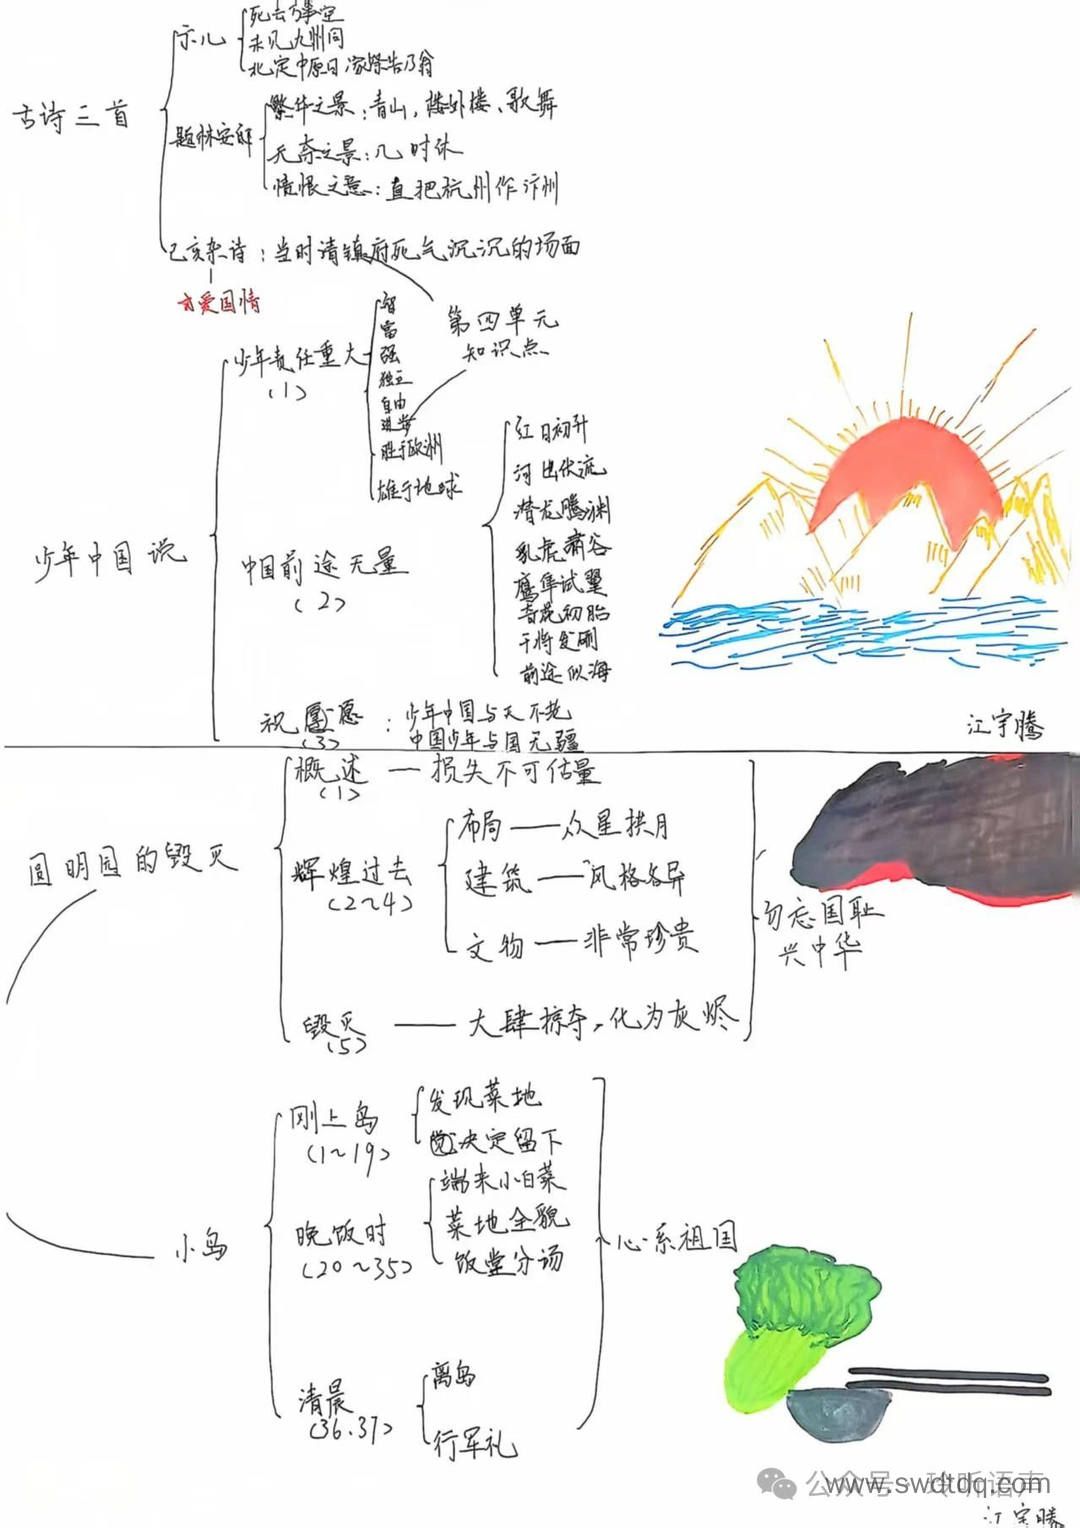 古诗三首
示儿
死去万事空
未见九州同
北定中原日 家祭告乃翁
题临安邸
繁华之景：青山，楼外楼、歌舞
无奈之景：几时休
愤恨之意：直把杭州作汴州
己亥杂诗：当时清镇府死气沉沉的场面
爱国情
第四单元
知识点
少年中国说
少年责任重大
(1)
智
富
强
独立
自由
进步
胜于欧洲
雄于地球
中国前途无量
(2)
红日初升
河出伏流
潜龙腾渊
乳虎啸谷
鹰隼试翼
奇花初胎
干将发硎
前途似海
祝愿
(3)
：少年中国与天不老
中国少年与国无疆
江宇腾
圆明园的毁灭
概述 — 损失不可估量
(1)
辉煌过去
(2~4)
布局 — 众星拱月
建筑 — 风格各异
文物 — 非常珍贵
毁灭 — 大肆掠夺，化为灰烬
(5)
勿忘国耻
兴中华
小岛
刚上岛
(1~19)
发现菜地
决定留下
晚饭时
(20~35)
端来小白菜
菜地全貌
饭堂分汤
清晨
(36.37)
离岛
行军礼
心系祖国
公众号·玲听语声
www.swdtdq.com
江宇腾